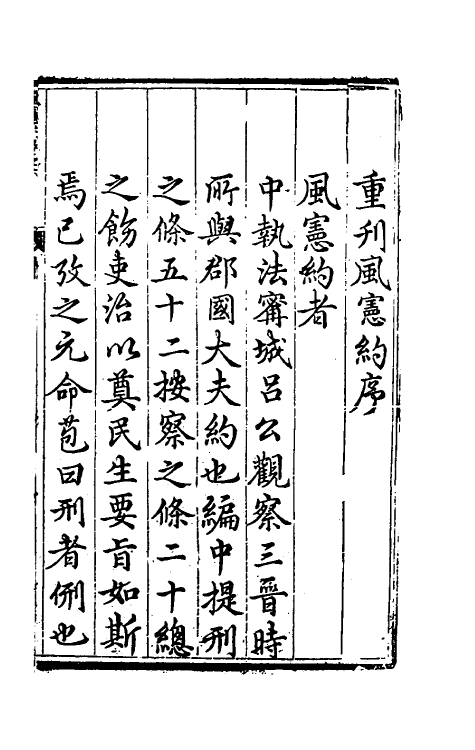 重刋風憲約序
風憲約者
中執法甯城呂公觀察三晉時
所與郡國大夫約也編中提刑
之條五十二按察之條二十總
之飭吏治以奠民生要旨如斯
焉已攷之元命苞曰刑者侀也